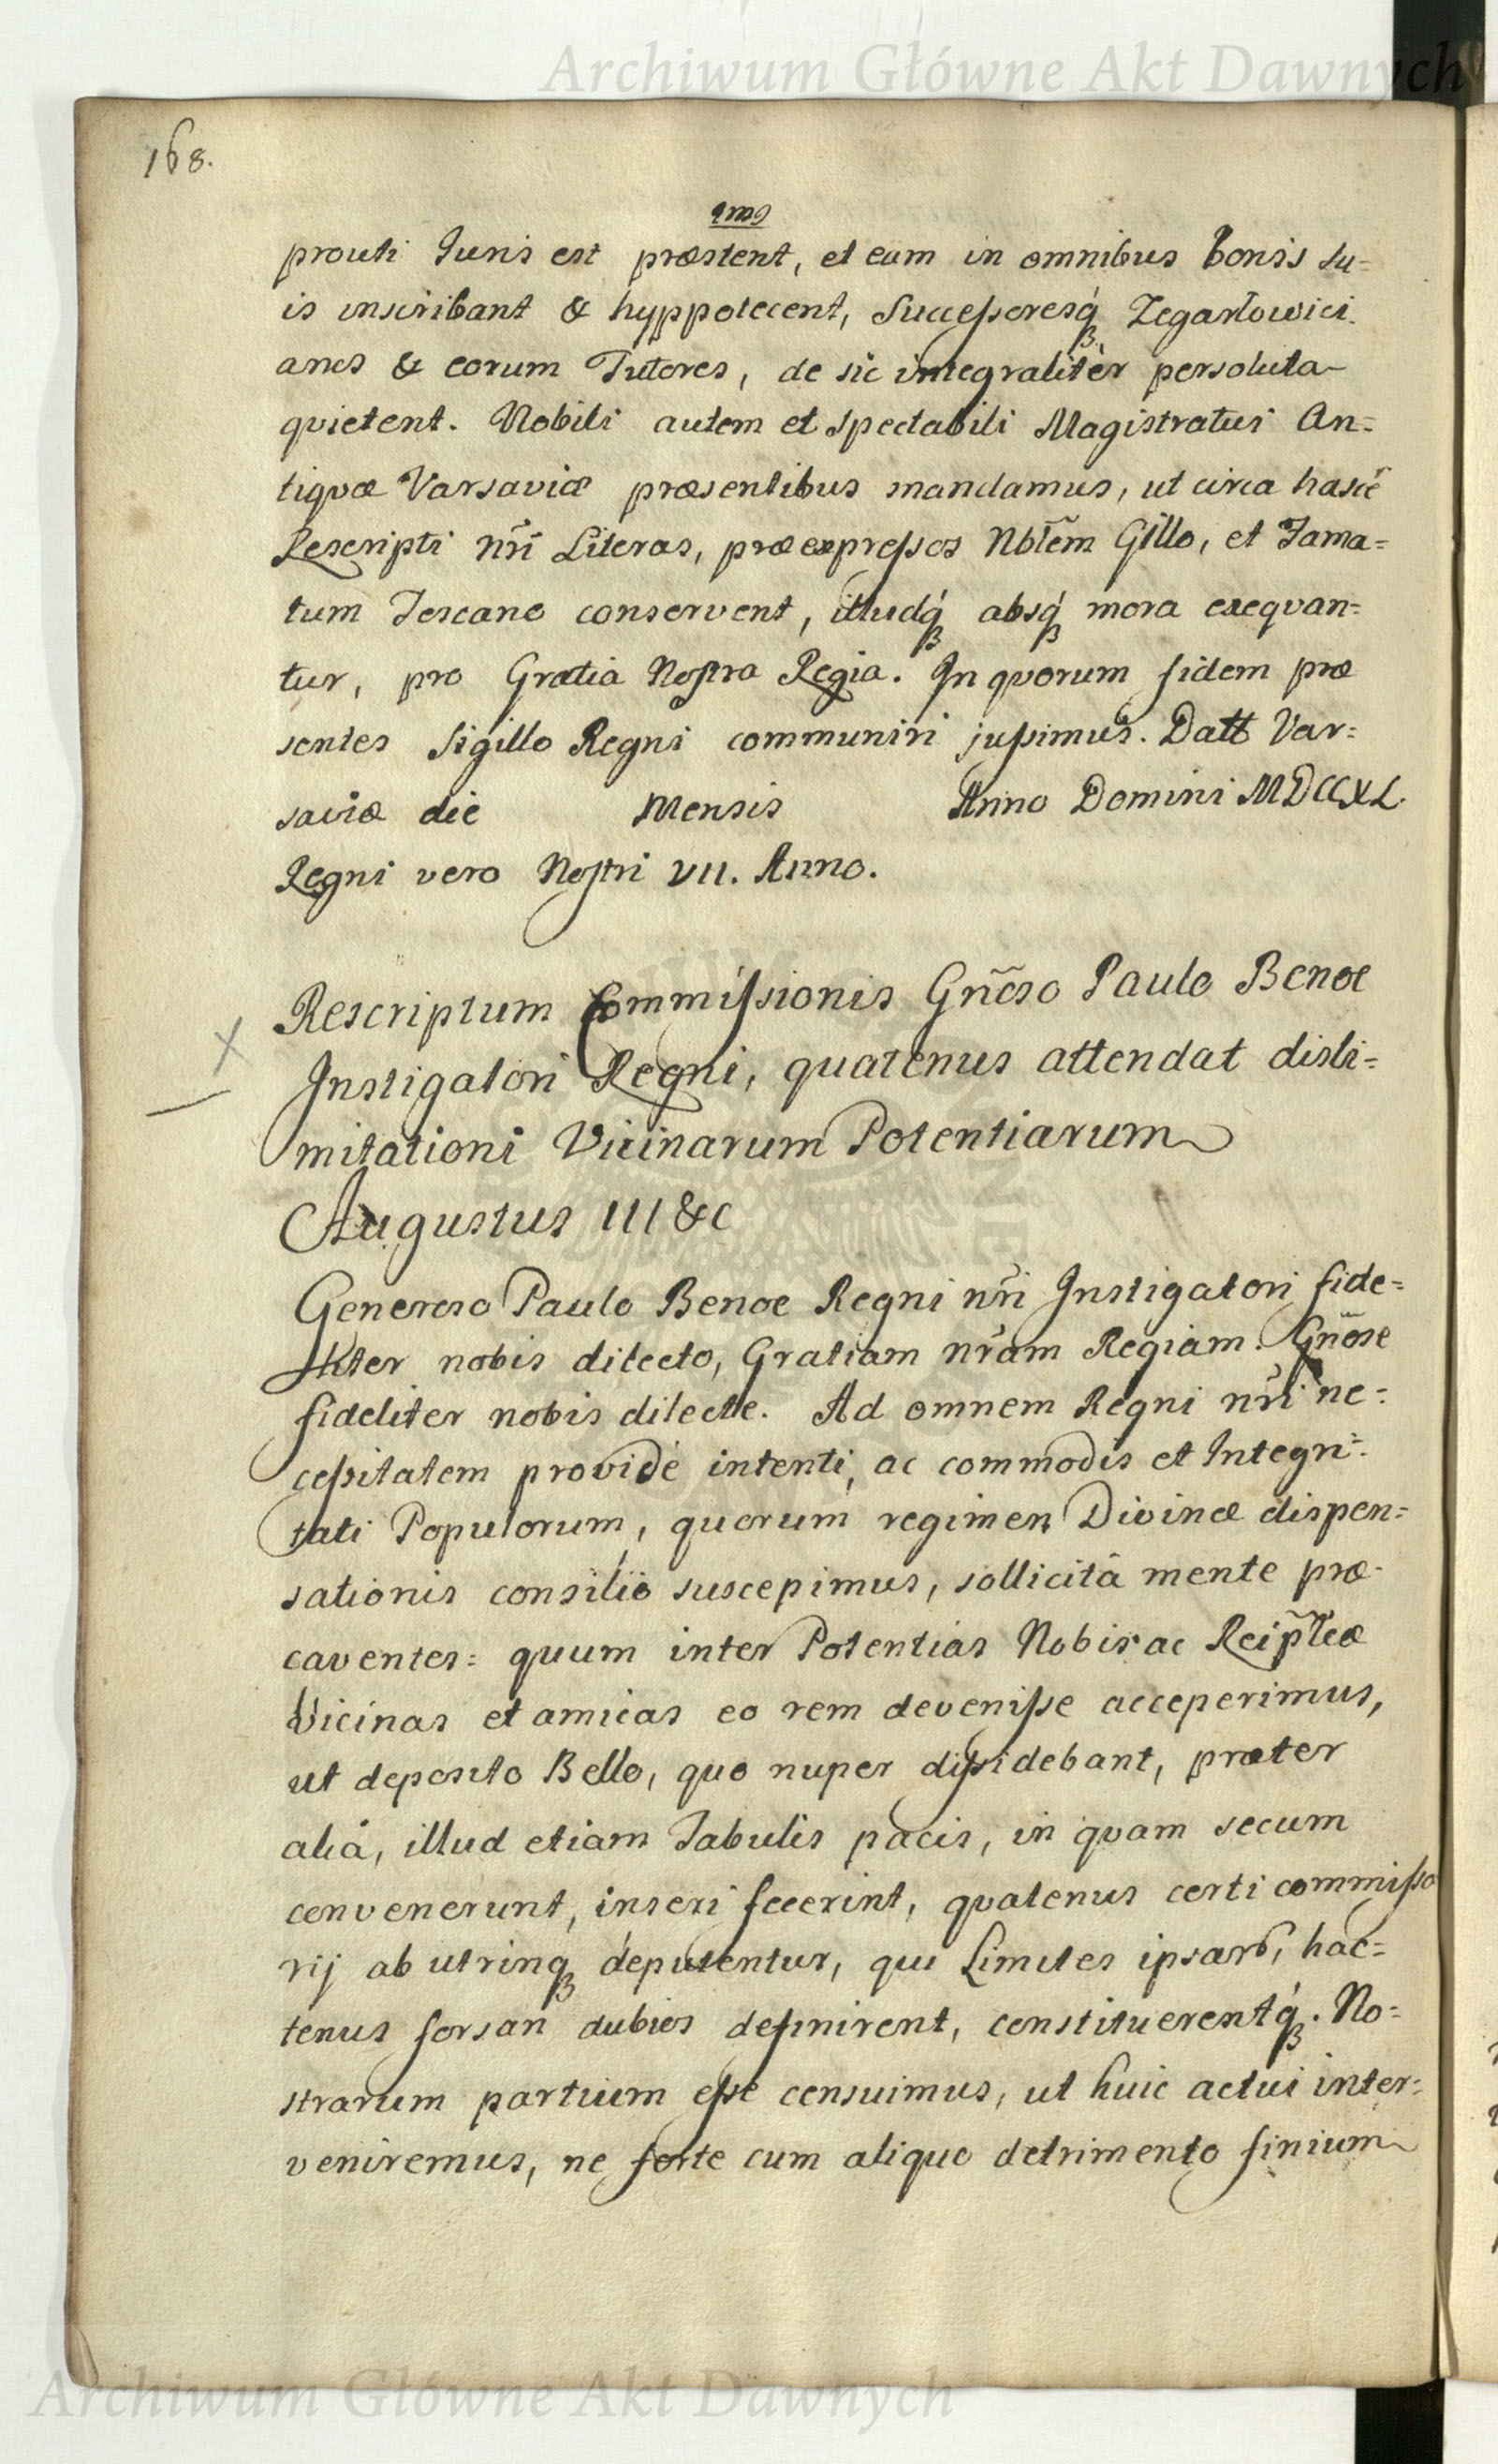 Archiwum Główne Akt Dawnych
168.
prouti Juris est præstent, et eam in omnibus bonis su=
is inscribant & hyppotecent, Successoresq́ Zegartowici
anos & eorum Tutores, de sic integralitèr persoluta
quietent. Nobili autem et Spectabili Magistratui An=
tiquæ Varsaviæ præsentibus mandamus, ut circa hasce
Rescripti nr̃i Literas, præexpressos Nbt̃em Gillo, et Fama=
tum Toscano conservent, illudq́ absq́ mora exequan=
tur, pro Gratia Nostra Regia. In quorum fidem præ
sentes Sigillo Regni communiri jussimus. Datt Var=
saviæ die Mensis Anno Domini MDCCXL.
Regni vero Nostri VII. Anno.
Rescriptum Commissionis Gño͂so Paulo Benoe
Instigatori Regni, quatenus attendat disli=
mitationi Vicinarum Potentiarum
Augustus III &c
Generoso Paulo Benoe Regni nr̃i Instigatori fide=
liter nobis dilecto, Gratiam nr̃am Regiam. Gño͂se
fideliter nobis dilecte. Ad omnem Regni nr̃i ne=
cessitatem providè intenti, ac commodis et Integri=
tati Populorum, quorum regimen Divinæ dispen=
sationis consilio suscepimus, sollicitâ mente præ-
caventes: quum inter Potentias Nobis ac Reip̃lcæ
Vicinas et amicas eo rem devenisse acceperimus,
ut deposito Bello, quo nuper dissidebant, præter
alia, illud etiam Tabulis pacis, in quam secum
convenerunt, inseri fecerint, quatenus certi commissa
rij ab utrinq́ deputentur, qui Limites ipsarũ, hac=
tenus forsan dubios definirent, constituerentq́. No=
strarum partium esse censuimus, ut huic actui inter=
veniremus, ne forte cum aliquo detrimento finium
Archiwum Główne Akt Dawnych